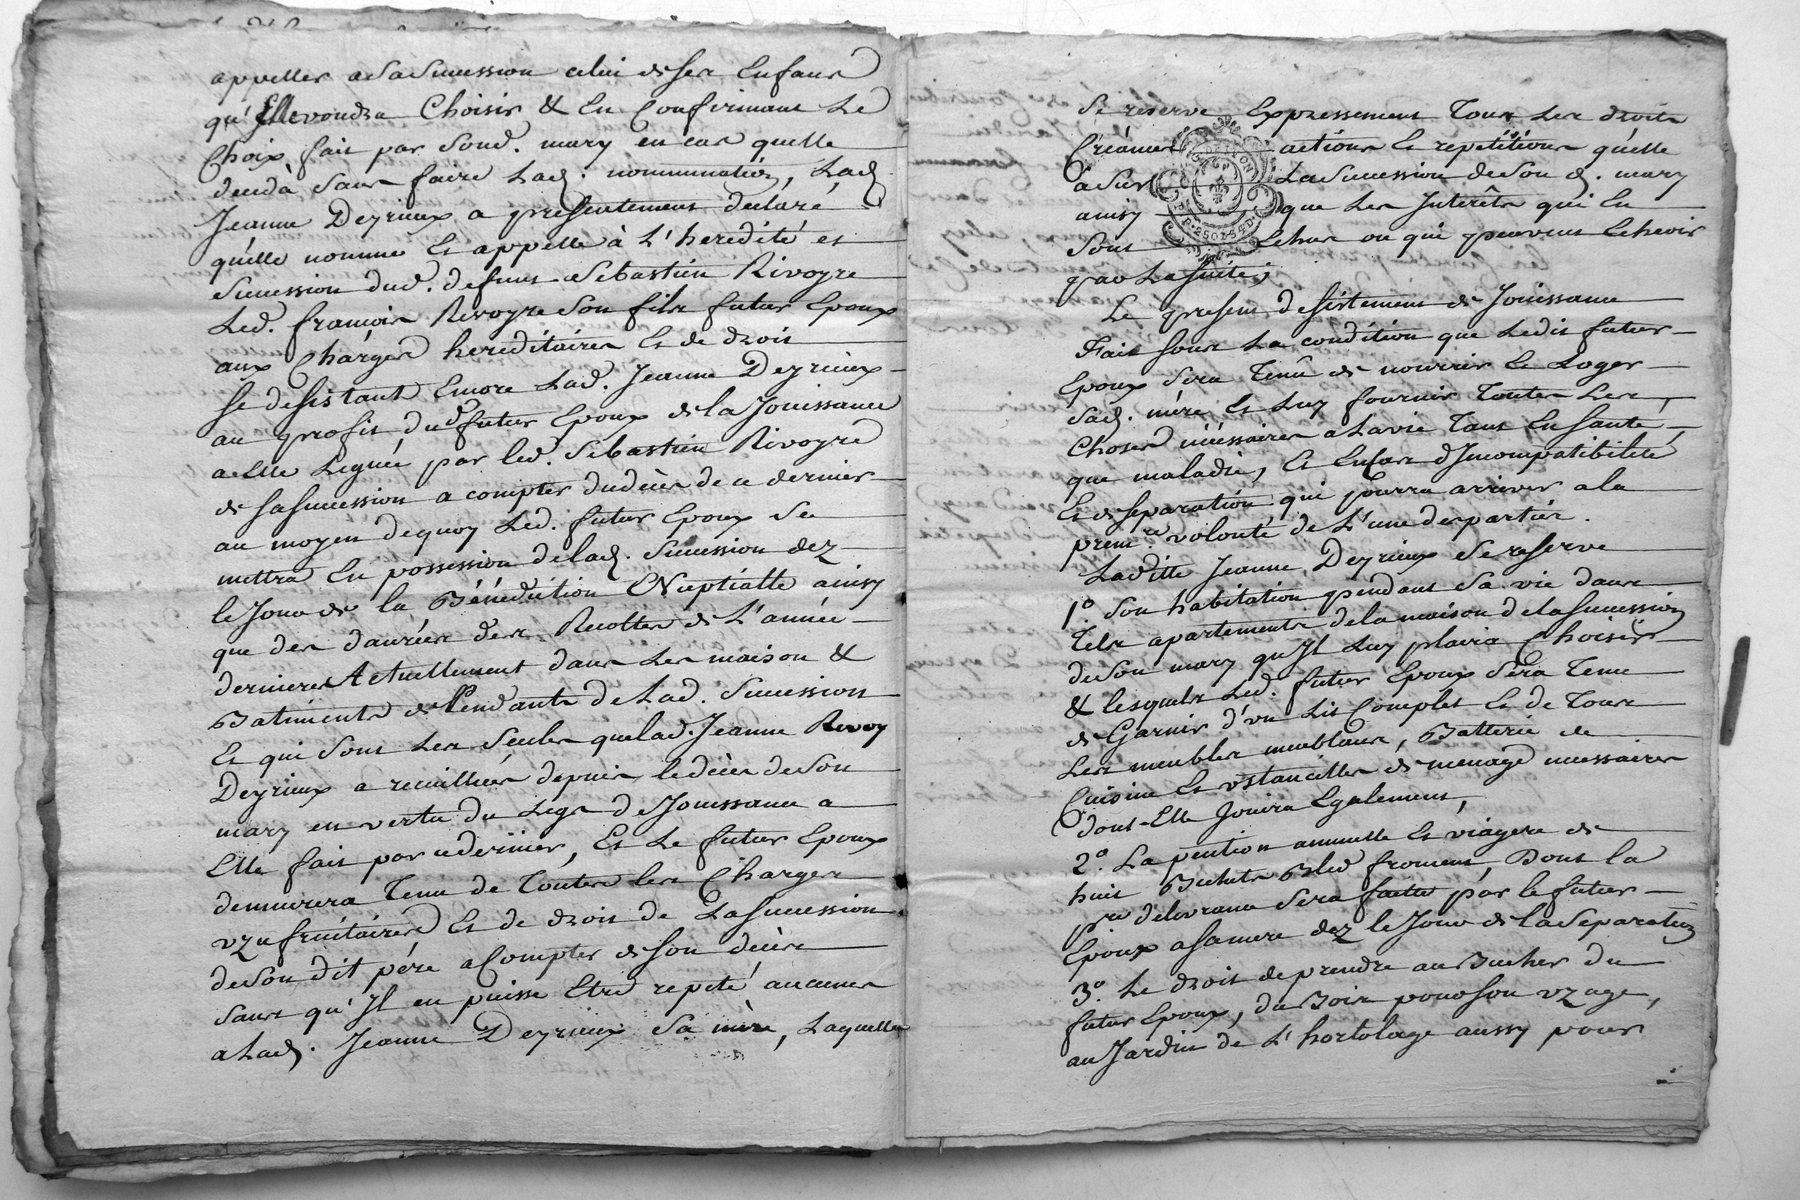 appeller a Sa Sucession celui de ses Enfans
qu'Elle voudra Choisir & En Confirmant Le
Choix fait par Sond. mary en cas quelle
décédà Sans faire Lad. nommination, Lad.
Jeanne Deyrieux a presentement déclaré
qu'elle nomme Et appelle à L'heredité et
Sucession dud. defunt Sebastien Rivoyre
Led. francois Rivoyre Son fils futur Epoux
aux Charges hereditaires Et de droit
Se desistant Encore Lad. Jeanne Deyrieux
au profit dud futur Epoux de la Jouissance
a Elle Leguée par led. Sebastien Rivoyre
de sa sucession a compter du décès de ce dernier
au moyen dequoy Led. futur Epoux Se
mettra En possession de lad. Sucession dez
le Jour de la Bénédiction Nuptialle ainsy
que des danrées des Recoltes de L'année
derniere Actuellement dans Les maison &
Batiments dépendants de Lad. Sucession
Et qui Sont Les Seules que lad. Jeanne Rivoy
Deyrieux a recuillies depuis le décès de Son
mary en vertu du Legs de Jouissance a
Elle fait par ce dernier, Et Le futur Epoux
demeurera Tenu de Toutes les Charges
vzufruitaires Et de droit de La Sucession
de Son dit pére a Compter de Son décès
Sans qu'Il en puisse Etre repeté aucunes
a Lad. Jeanne Deyrieux Sa mère, Laquelle
Se reserve Expressement Tous Les droits
Créances actions Et repetitions qu'elle
a Sur La Sucession de Son d. mary
ainsy que Les Interêts qui En
Sont Echus ou qui peuvent Echeoir
par La Suite;
Le present desistement de Jouissance
Fait Sous La condition que Ledit futur
Epoux Sera Tenu de nourrir Et Loger
Sad. mére Et Luy fournir Toutes Les
Choses nécéssaires a La vie Tant En Santé
que maladie, Et En Cas d'Incompatibilité
Et de separation qui pourra arriver a la
prem.re volonté de L'une des parties.
Laditte Jeanne Deyrieux Se reserve
1.° Son habitation pendant Sa vie dans
Tels apartements de la maison de la Sucession
de Son mary qu'Il Luy plaira Choisir
& lesquels Led. futur Epoux Sera Tenu
de Garnir d'un Lit Complet Et de Tous
Les meubles meublans, Batterie de
Cuisine Et vstancilles de menage necessaires
dont Elle Jouira Egalement,
2.° La pention annuelle Et viagere de
huit Bichets Bled froment Dont la
p.re délivrance Sera faitte par le futur
Epoux a Sa mere dez le Jour de la Separation
3.° Le droit de prendre au Bucher du
futur Epoux, du Bois pour Son vzage,
au Jardin de L'hortolage aussy pour